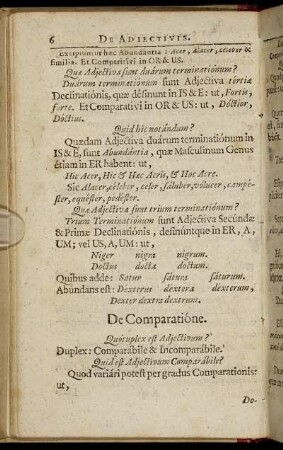 6 DE ADJECTIVIS.
Excipiuntur hæc Abundantia: Acer, alacer, celeber &
similia. Et Comparativi in OR & US.
Quæ Adjectiva sunt duárum terminatiónum?
Duárum terminatiónum sunt Adjectiva tértia
Declinatiónis, quæ désinunt in IS & E, ut, Fortis,
forte. Et Comparativi in OR & US: ut, Dóctior,
Dóctius.
Quid hic notándum?
Quædam Adjectiva duárum terminatiónum in
IS & E, sunt Abundántia, quæ Masculinum Genus
étiam in ER habent: ut,
Hic Acer, Hic & Hæc Acris, & Hoc Acre.
Sic Alacer, céleber, celer, sáluber, vólucer, campé-
ster, equéster, pedéster.
Quæ Adjectiva sunt trium terminatiónum?
Trium Terminatiónum sunt Adjectiva Secundæ
& Primæ Declinatiónis, desinúntque in ER, A,
UM; vel US, A, UM: ut,
Niger nigra nigrum.
Doctus docta doctum.
Quibus adde: Satur sátura sáturum.
Abundans est: Déxterus déxtera déxterum,
Dexter dextra dextrum.
De Comparatióne.
Quótuplex est Adjectívum?
Duplex: Comparábile & Incomparábile.
Quid est Adjectivum Comparábile?
Quod variári potest per gradus Comparationis:
ut,
Do-